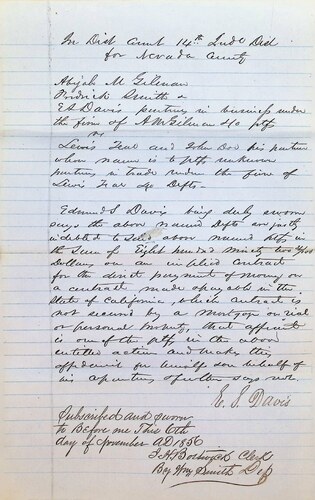 In Dist Court 14th Judl Dist
for Nevada County
Abijah M Gilman
Smith &
E S Davis partners in business under
the firm of A M Gilman & Co ptffs
vs
Lewis Tear and John Doe his partner
whose name is to ptffs unknown
partners in trade under the firm of
Lewis Tear & Co Defts
Edmund S Davis being duly sworn
says the above named Defts are justly
indebted to said above named ptffs in
the Sum of Eight hundred ninety two
Dollars on an implied contract
for the direct payment of money or
a contract made & payable in the
State of California, which contract is
not secured by a mortgage on real
or personal property, that affiant
is one of the ptffs in the above
entitled action and makes this
affidavit for himself & on behalf of
his & further says not.
E. S. Davis
Subscribed and Sworn
to Before me This 6th
day of November AD 1856
Clerk
By Wm Smith Dep